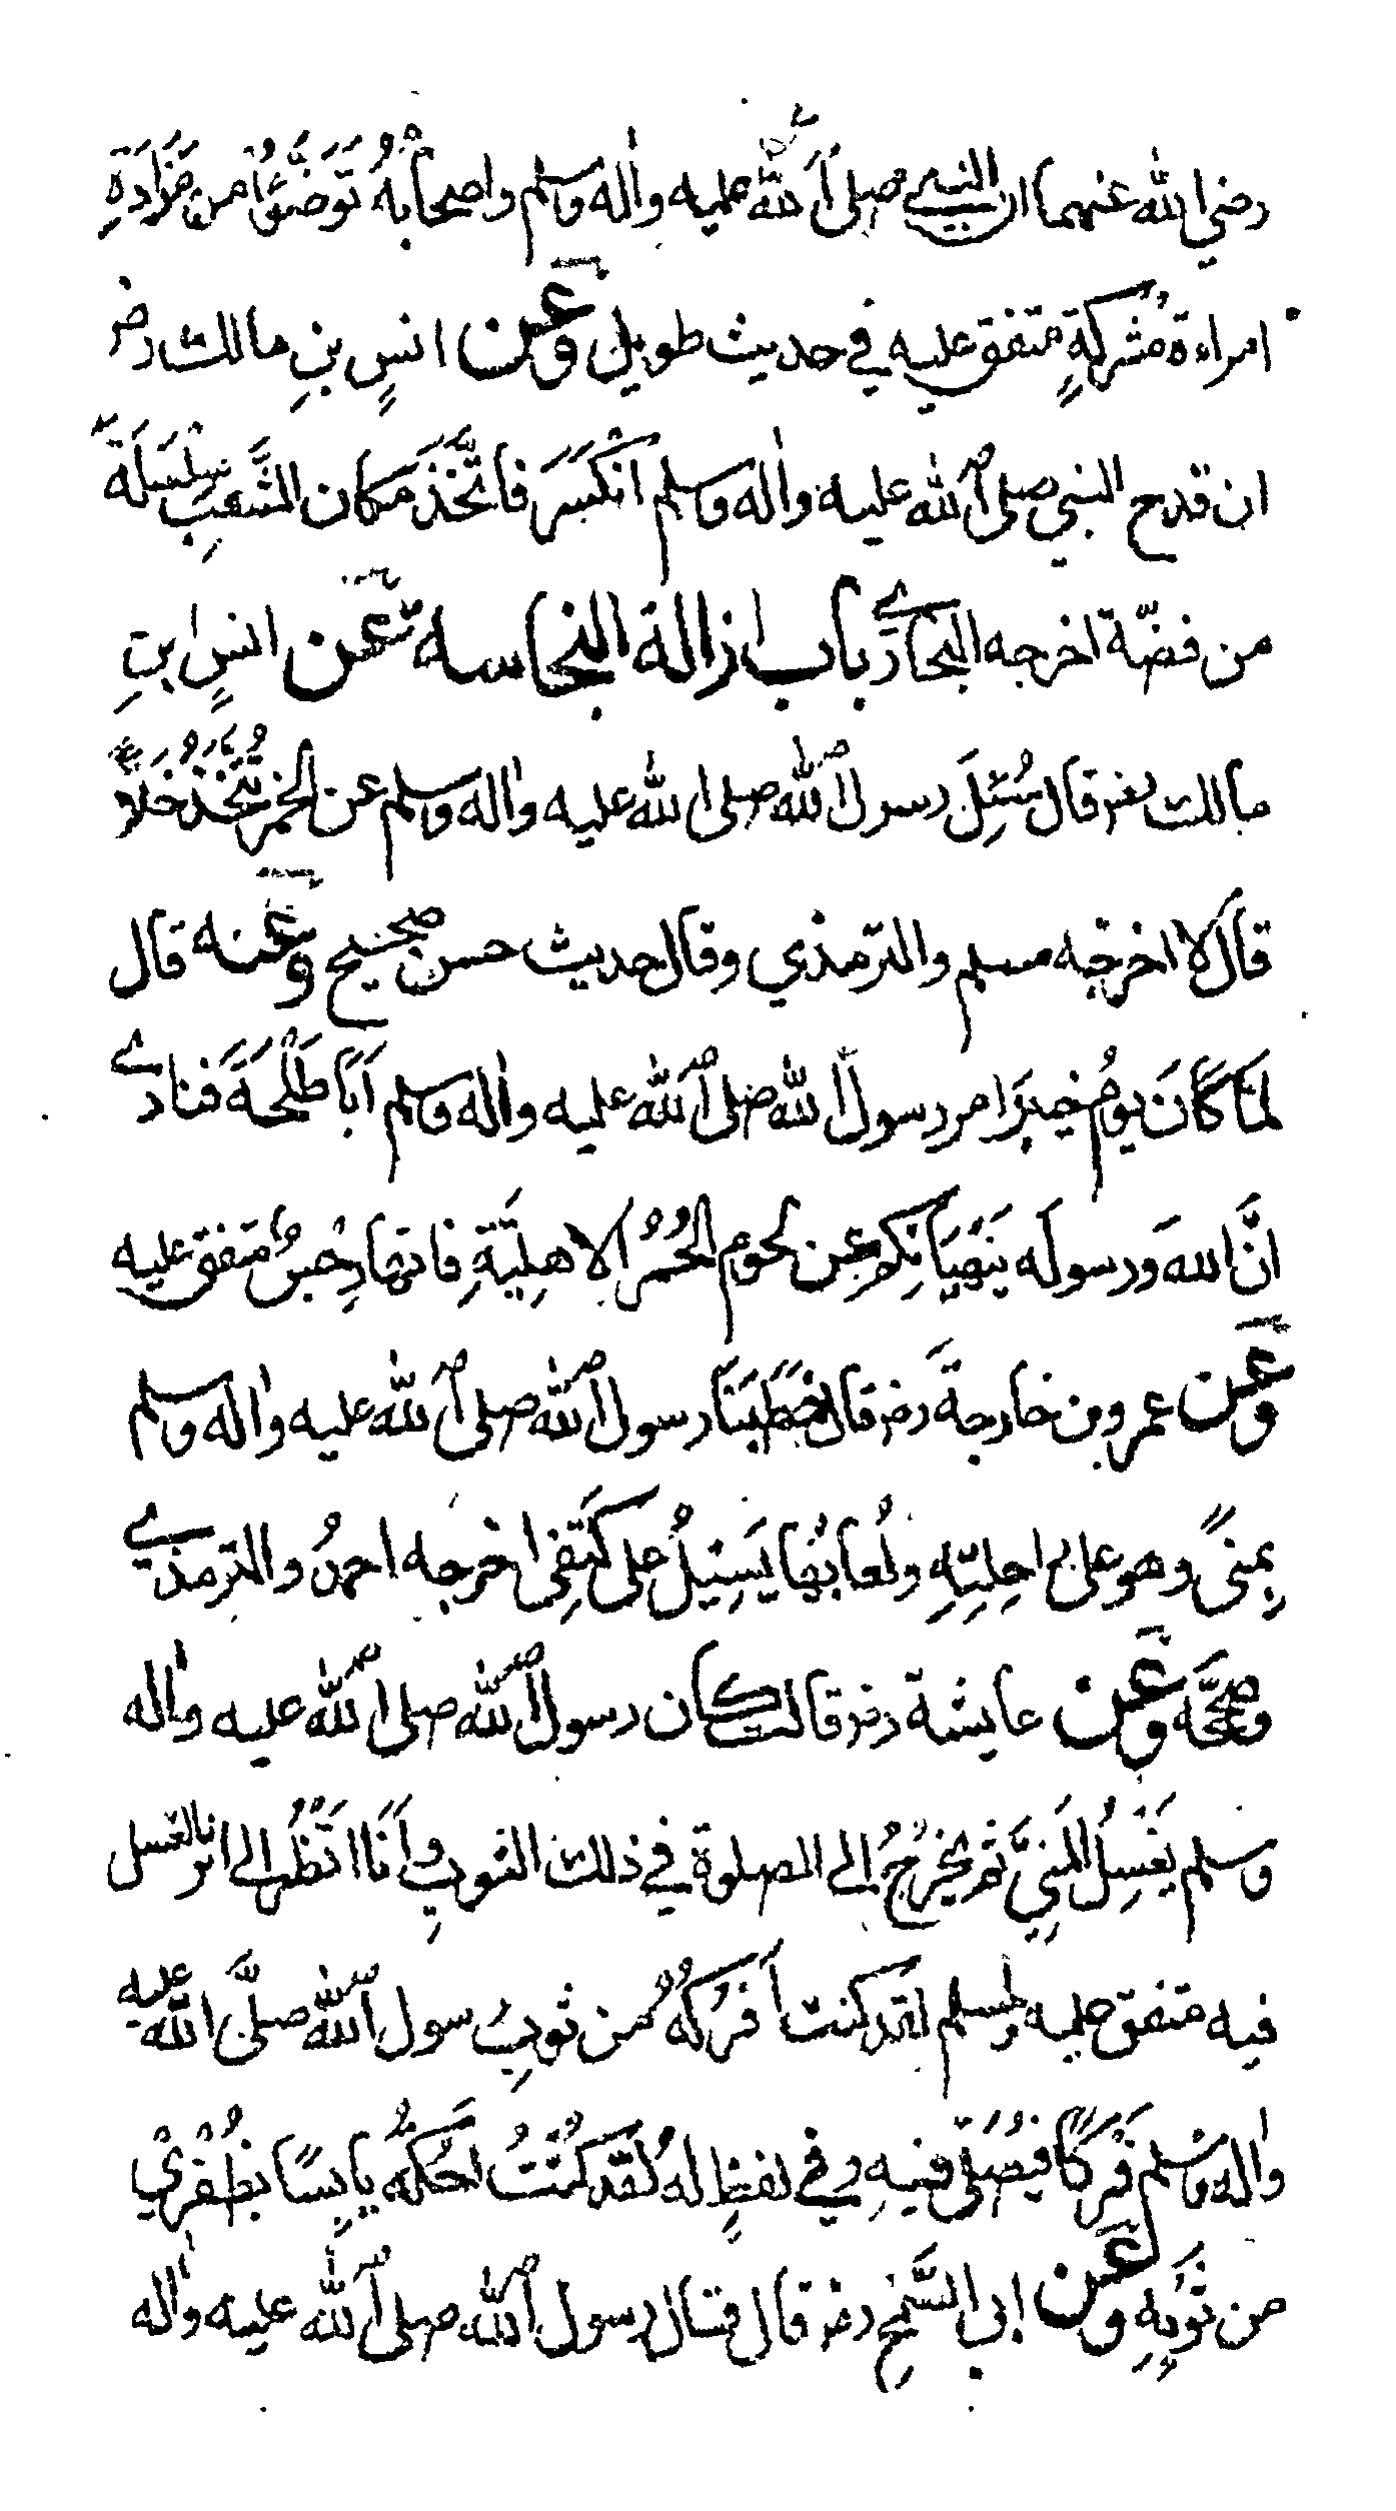 رضي الله عنهما ان النبي صلى الله عليه واله وسلم واصحابهُ تَوَضَّؤُا من مَزَادَةِ
امراءة مُشركةٍ متفق عليه في حديث طويل وعن انسٍ بنِ مالك رض
ان قدح النبي صلى الله عليه واله وسلم انْكَسَرَ فاتَّخَذَ مَكان الشَّعبِ سِلْسِلَةً
من فضّة اخرجه البخاري باب ازالة النجاسة عن انسٍ ابنِ
مالك رض قال سُئِلَ رسول الله صلى الله عليه واله وسلم عن الخمر تُتَّخَذُ خَلاًّ
قال لا اخرجه مسلم والترمذي وقال حديث حسن صحيح وعنه قال
لمَّا كَانَ يومُ خيبرَ امر رسول الله صلى الله عليه واله وسلم اَبَا طَلْحَةَ فنادى
انَّ اللهَ ورسولَه يَنْهَيَانِكم عن لحوم الحُمُرِ الاهلِيَّةِ فانها رِجْسٌ متفق عليه
وعن عمرو بن خارجةَ رض قال خَطَبَنَا رسول الله صلى الله عليه واله وسلم
بِمنىً وهو على راحِلتِهِ ولُعابُها يَسِيْلُ على كَتِفِى اخرجه احمدُ والترمذي
وصحَّحَه وعن عايشة رض قالت كان رسول الله صلى الله عليه واله
وسلم يَغْسِلُ المَنِيَّ ثم يَخْرُجُ الى الصلوة في ذلك الثوبِ واَنَا اَنْظُر الى اثر الغسل
فيه متفق عليه ولمسلم لقد كنت اَفْرُكُهُ من ثوبِ رسول الله صلَّى الله عليه
واله وسلم فَرْكًا فيُصَلّى فيهِ وفي لفظٍ له لَقَد كُنْتُ اَحُكُّهُ يابِسًا بظُفْرِيْ
من ثَوْبِهِ وعن ابي السَّمْحِ رض قال قال رسول الله صلى الله عليه واله